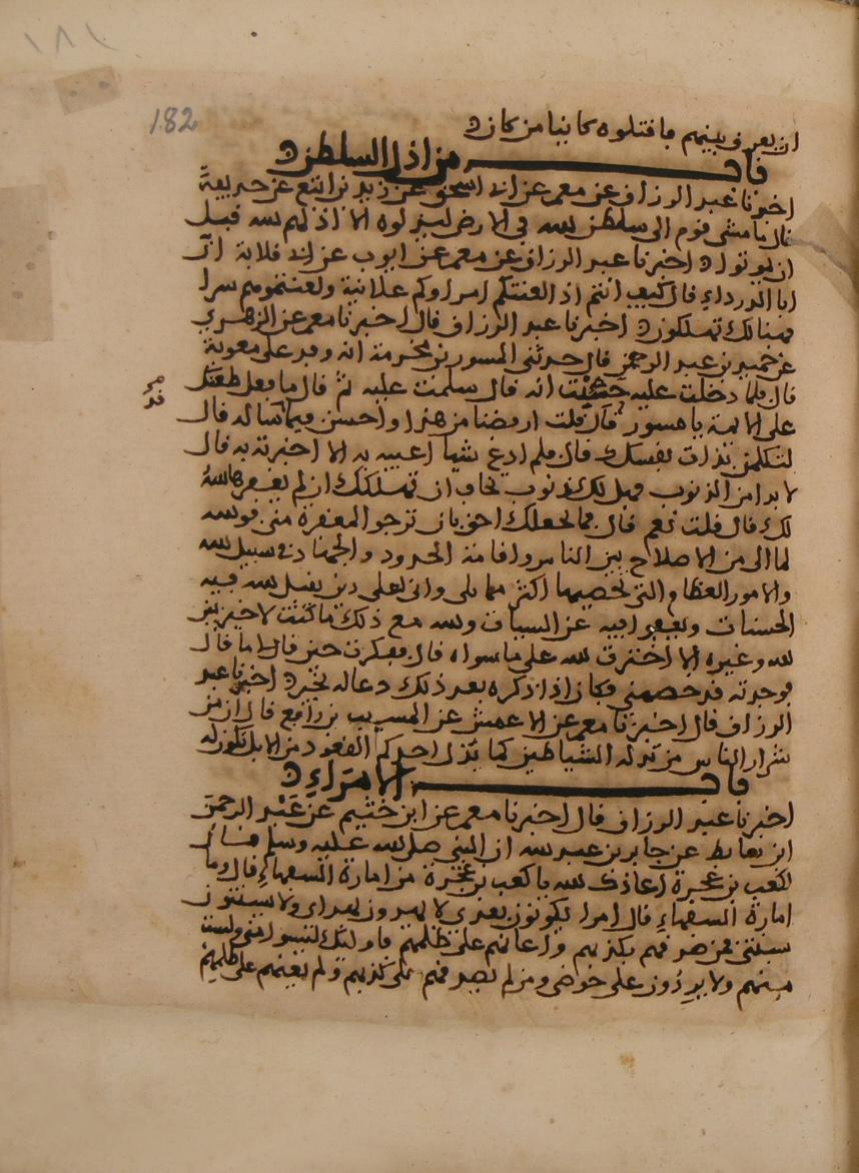 ١٨١
182
ان يعرف بينهم فاقتلوه كائنا من كان
باب من اذل السلطن
اخبرنا عبد الرزاق عن معمر عن ابي اسحق عن زيد بن اثيع عن حذيفة
قال ما مشى قوم الى سلطن الله في الارض ليذلوه الا اذلهم الله قبل
ان يموتوا اخبرنا عبد الرزاق عن معمر عن ايوب عن ابي قلابة ان
ابا الدرداء قال كيف انتم اذا لعنتكم امراوكم علانية ولعنتموهم سرا
فهنالك تهلكون اخبرنا عبد الرزاق قال اخبرنا معمر عن الزهري
عن حميد بن عبد الرحمن قال حدثني المسور بن مخرمة انه وفد على معوية
قال فلما دخلت عليه حسبت انه قال سلمت عليه ثم قال ما فعل طعنك
على الائمة يا مسور قال قلت ارفضنا من هذا واحسن فيما قدمنا له قال
لتكلمن بذات نفسك قال فلم ادع شيا اعيبه به الا اخبرته به قال
لا ابرا من الذنوب فهل لك ذنوب تخاف ان تهلكك ان لم يغفرها الله
لك قال قلت نعم قال فما يجعلك احق بان ترجو المغفرة مني فوالله
لما الي من الاصلاح بين الناس واقامة الحدود والجهاد في سبيل الله
والامور العظام التي تحصيها اكثر مما تلي واني لعلى دين يقبل الله فيه
الحسنات ويعفوا فيه عن السيات والله مع ذلك ما كنت لاخير بين
الله وغيره الا اخترت الله على ما سواه قال ففكرت حين قال لي ما قال
فوجدته قد خصمني فكان اذا ذكره بعد ذلك دعا له بخير اخبرنا عبد
الرزاق قال اخبرنا معمر عن الاعمش عن المسيب بن رافع قال ان من
شرار الناس من تذلّه الشياطين كما يذل احدكم القعود من الابل تكون له
باب الامراء
اخبرنا عبد الرزاق قال اخبرنا معمر عن ابن خثيم عن عبد الرحمن
ابن سابط عن جابر بن عبد الله ان النبي صلى الله عليه وسلم قال
لكعب بن عجرة اعاذك الله يا كعب بن عجرة من امارة السفهاء قال وما
امارة السفهاء قال امرا يكونون بعدي لا يهدون بهداي ولا يستنون
بسنتي فمن صدقهم بكذبهم واعانهم على ظلمهم فاولئك ليسوا مني ولست
منهم ولا يردون على حوضي ومن لم يصدقهم على كذبهم ولم يعنهم على ظلمهم